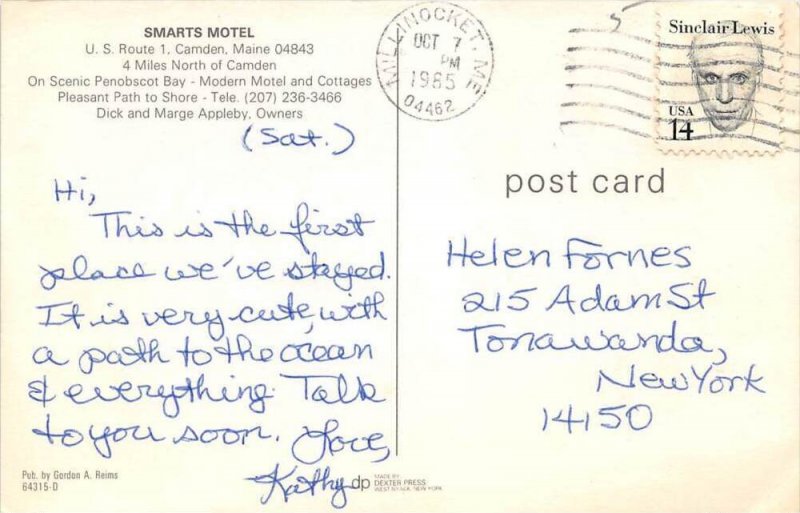 SMARTS MOTEL
U. S. Route 1, Camden, Maine 04843
4 Miles North of Camden
On Scenic Penobscot Bay - Modern Motel and Cottages
Pleasant Path to Shore - Tele. (207) 236-3466
Dick and Marge Appleby, Owners
(Sat.)
Hi,
This is the first
place we've stayed.
It is very cute, with
a path to the ocean
& everything. Talk
to you soon. Love,
Kathy
Pub. by Gordon A. Reims
64315-D
dp
MADE BY
DEXTER PRESS
WEST NYACK, NEW YORK
MILLINOCKET, ME
OCT 7
PM
1985
04462
Sinclair Lewis
USA
14
post card
Helen Fornes
215 Adam St
Tonawanda,
New York
14150